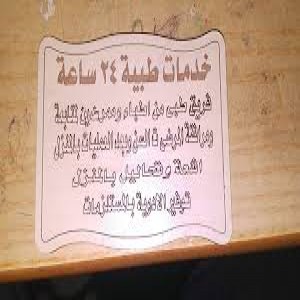 خدمات طبية ٢٤ ساعة
فريق طبى من اطباء وممرضين لمتابعة
ومرافقة المرضى فى السن وبعد العمليات بالمنزل
اشعة وتحاليل بالمنزل
توفير الادوية بالمستلزمات